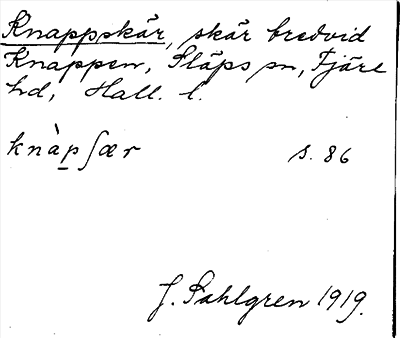 Knappskär, skär bredvid
Knappen, Släps sn, Fjäre
hd, Hall. l.
knàp̲ʃær s. 86
J. Sahlgren 1919.